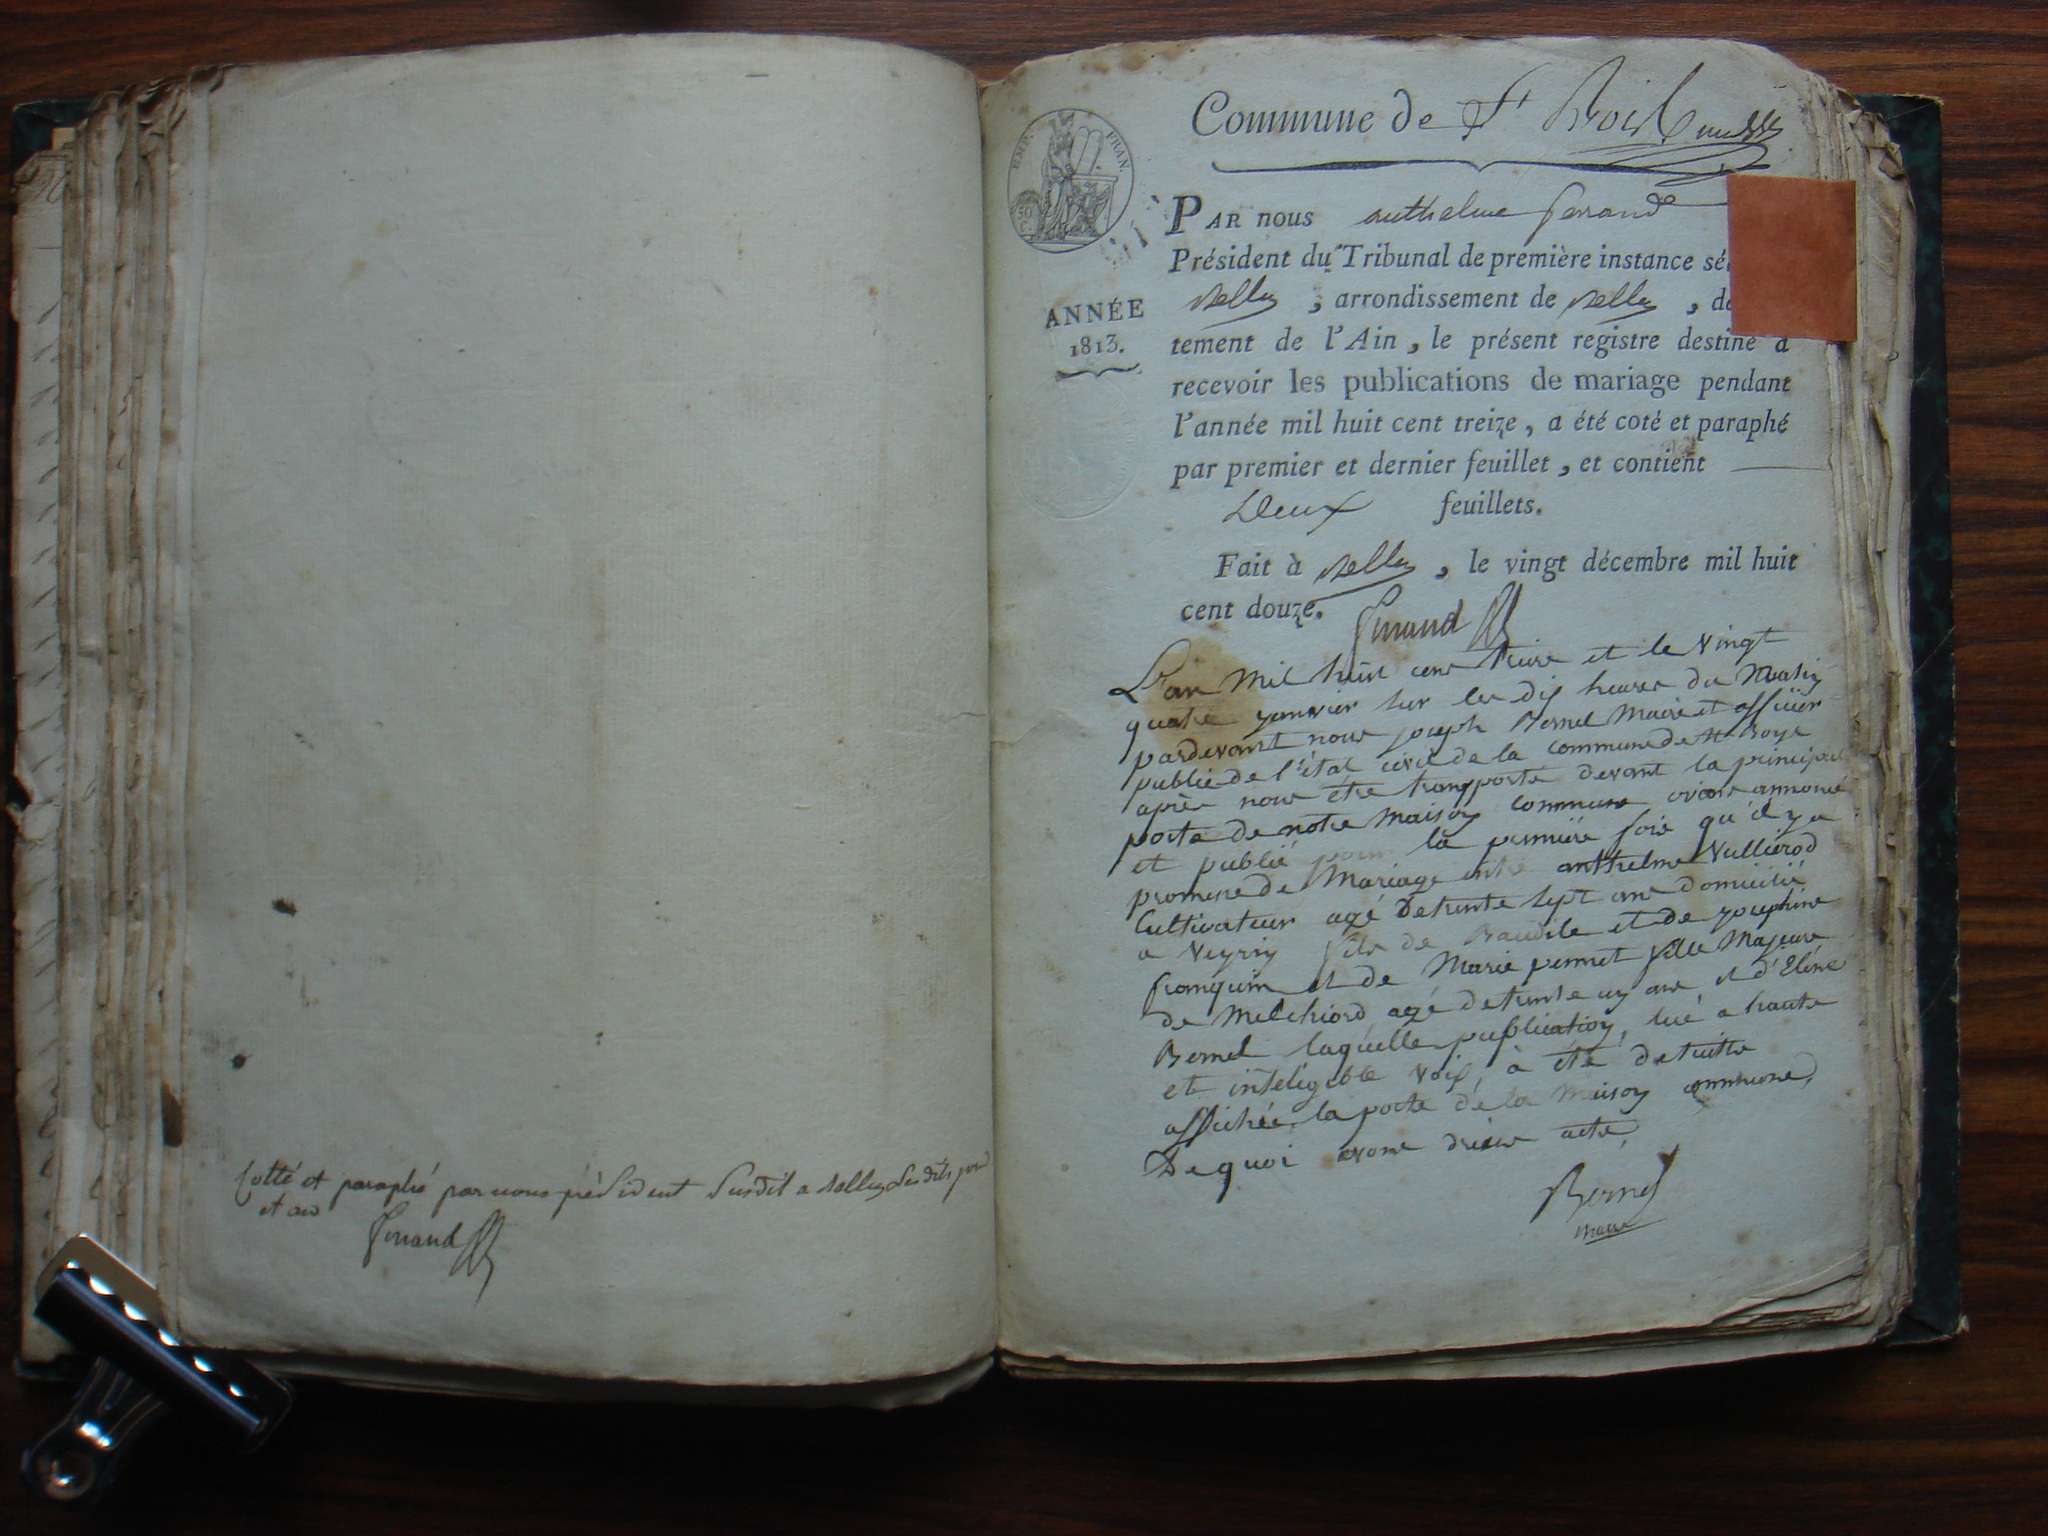 Cotté et paraphé par nous président susdit a Belley les dits jour
et an
Ferrand
EMP. FRAN.
50
C.
ANNÉE
1813.
Commune de St Bois
PAR nous anthelme ferrand
Président du Tribunal de première instance sé
Belley, arrondissement de Belley, d
tement de l'Ain, le présent registre destiné à
recevoir les publications de mariage pendant
l'année mil huit cent treize, a été coté et paraphé
par premier et dernier feuillet, et contient
Deux feuillets.
Fait à Belley, le vingt décembre mil huit
cent douze.
Ferrand
L'an mil huit cent treize et le vingt
quatre janvier sur les dix heures du Matin
pardevant nous joseph Bernel Maire et officier
public de l'état civil de la commune de St Boys
après nous être transporté devant la principal
porte de notre Maison commune avons annoncé
et publié pour la première fois qu'il y a
promesse de Mariage entre anthelme Vullierod
Cultivateur agé de trente sept ans domicilié
a Veyrin fils de Baudile et de josephine
franquin et de Marie pernet fille Majeure
de Melchiord agé de trente un ans et d'Eléne
Bernel laquelle publication, lue a haute
et inteligible voix, à été de suitte
affichée la porte de la Maison commune,
De quoi avons dressé acte,
Bernel
maire